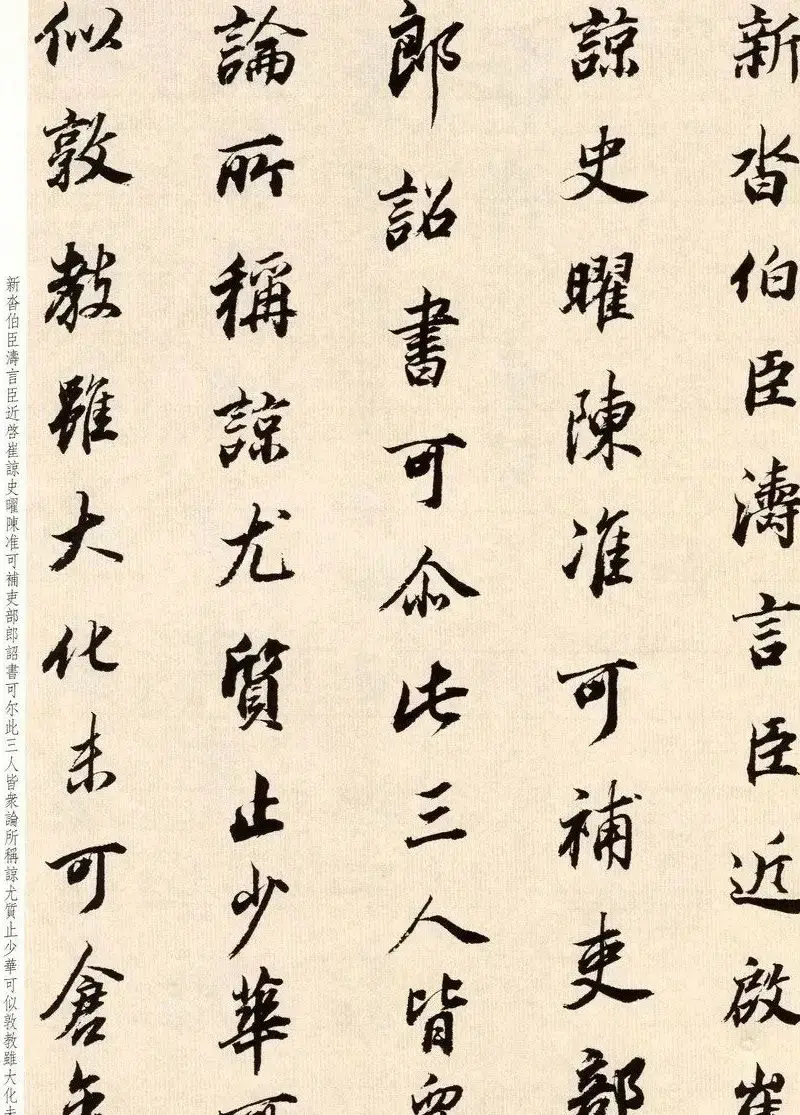 新沓伯臣濤言臣近啟崔
諒史曜陳准可補吏部
郎詔書可尒此三人皆衆
論所稱諒尤質止少華可
似敦教雖大化未可倉
新沓伯臣濤言臣近啓崔諒史曜陳准可補吏部郎詔書可尔此三人皆衆論所稱諒尤質止少華可似敦教雖大化未